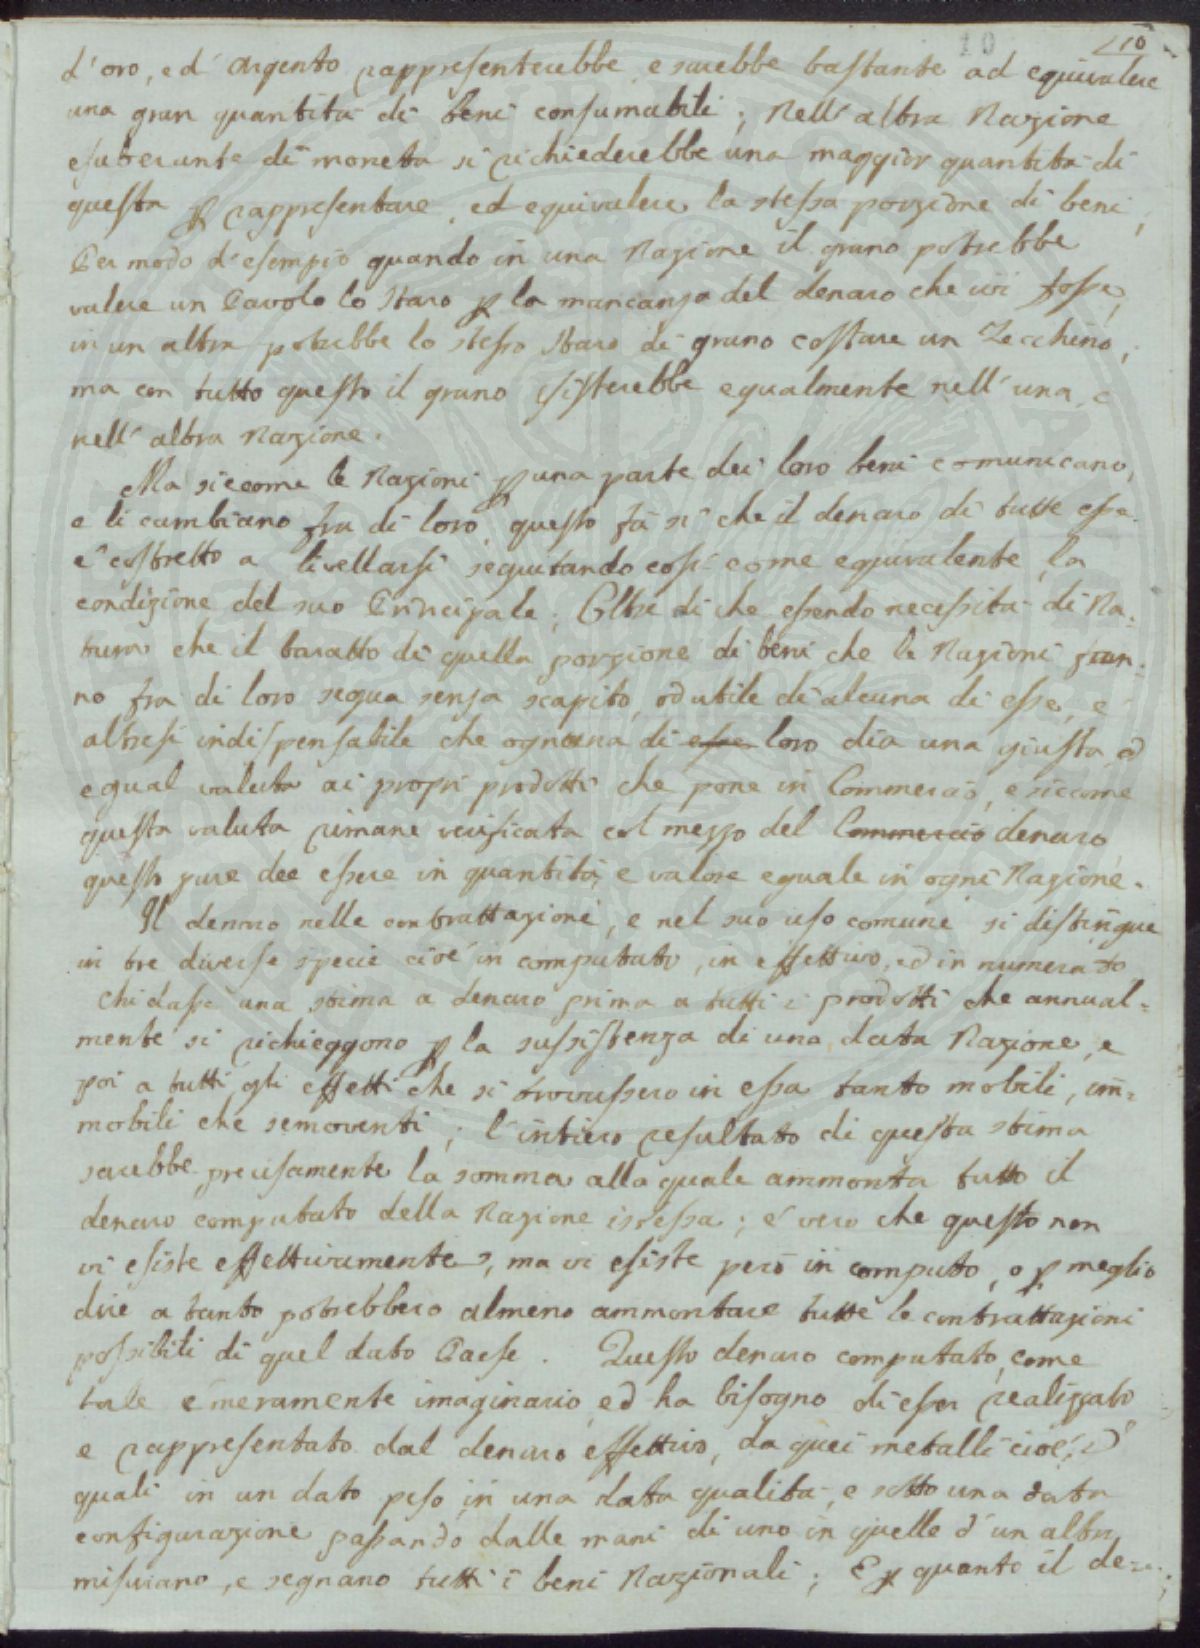 10 10
d'oro, ed' Argento rappresenterebbe, e sarebbe bastante ad equivalere
una gran quantità di beni consumabili; Nell'altra Nazione
esuberante di moneta si richiederebbe una maggior quantità di
questa p rappresentare, ed equivalere la stessa porzione di beni;
Per modo d'esempio quando in una Nazione il grano potrebbe
valere un Pavolo lo Staro p la mancanza del denaro che ivi fosse,
in un altra potrebbe lo stesso Staro di grano costare un Zecchino;
ma con tutto questo il grano esisterebbe egualmente nell'una, e
nell'altra Nazione.
Ma siccome le Nazioni p una parte dei loro beni comunicano,
e li cambiano fra di loro, questo fà si che il denaro di tutte esse
è costretto a livellarsi seguitando così come equivalente la
condizione del suo Principale; Oltre di che essendo necessità di Na=
tura che il baratto di quella porzione di beni che le Nazioni fan=
no fra di loro segua senza scapito, od utile di alcuna di esse, è
altresì indispensabile che ognuna di esse loro dia una giusta, ed
egual valuta ai propri prodotti che pone in Commercio, e siccome
questa valuta rimane verificata col mezzo del Commercio denaro
questo pure dee essere in quantità, e valore eguale in ogni Nazione.
Il denaro nelle contrattazioni, e nel suo uso comune si distingue
in tre diverse specie cioè in computato, in effettivo, ed in numerato
Chi dasse una stima a denaro prima a tutti i prodotti che annual=
mente si richieggono p la sussistenza di una data Nazione, e
poi a tutti gli effetti che si trovassero in essa tanto mobili, im=
mobili che semoventi; l'intiero resultato di questa stima
sarebbe precisamente la somma alla quale ammonta tutto il
denaro computato della Nazione istessa; è vero che questo non
vi esiste effettivamente, ma vi esiste però in computo, o p meglio
dire a tanto potrebbero almeno ammontare tutte le contrattazioni
possibili di quel dato Paese. Questo denaro computato, come
tale è meramente imaginario, ed ha bisogno di esser realizzato
e rappresentato dal denaro effettivo, da quei metalli cioè, i
quali in un dato peso, in una data qualità, e sotto una data
configurazione passando dalle mani di uno in quelle d'un altro
misurano, e segnano tutti i beni Nazionali; E p quanto il de=